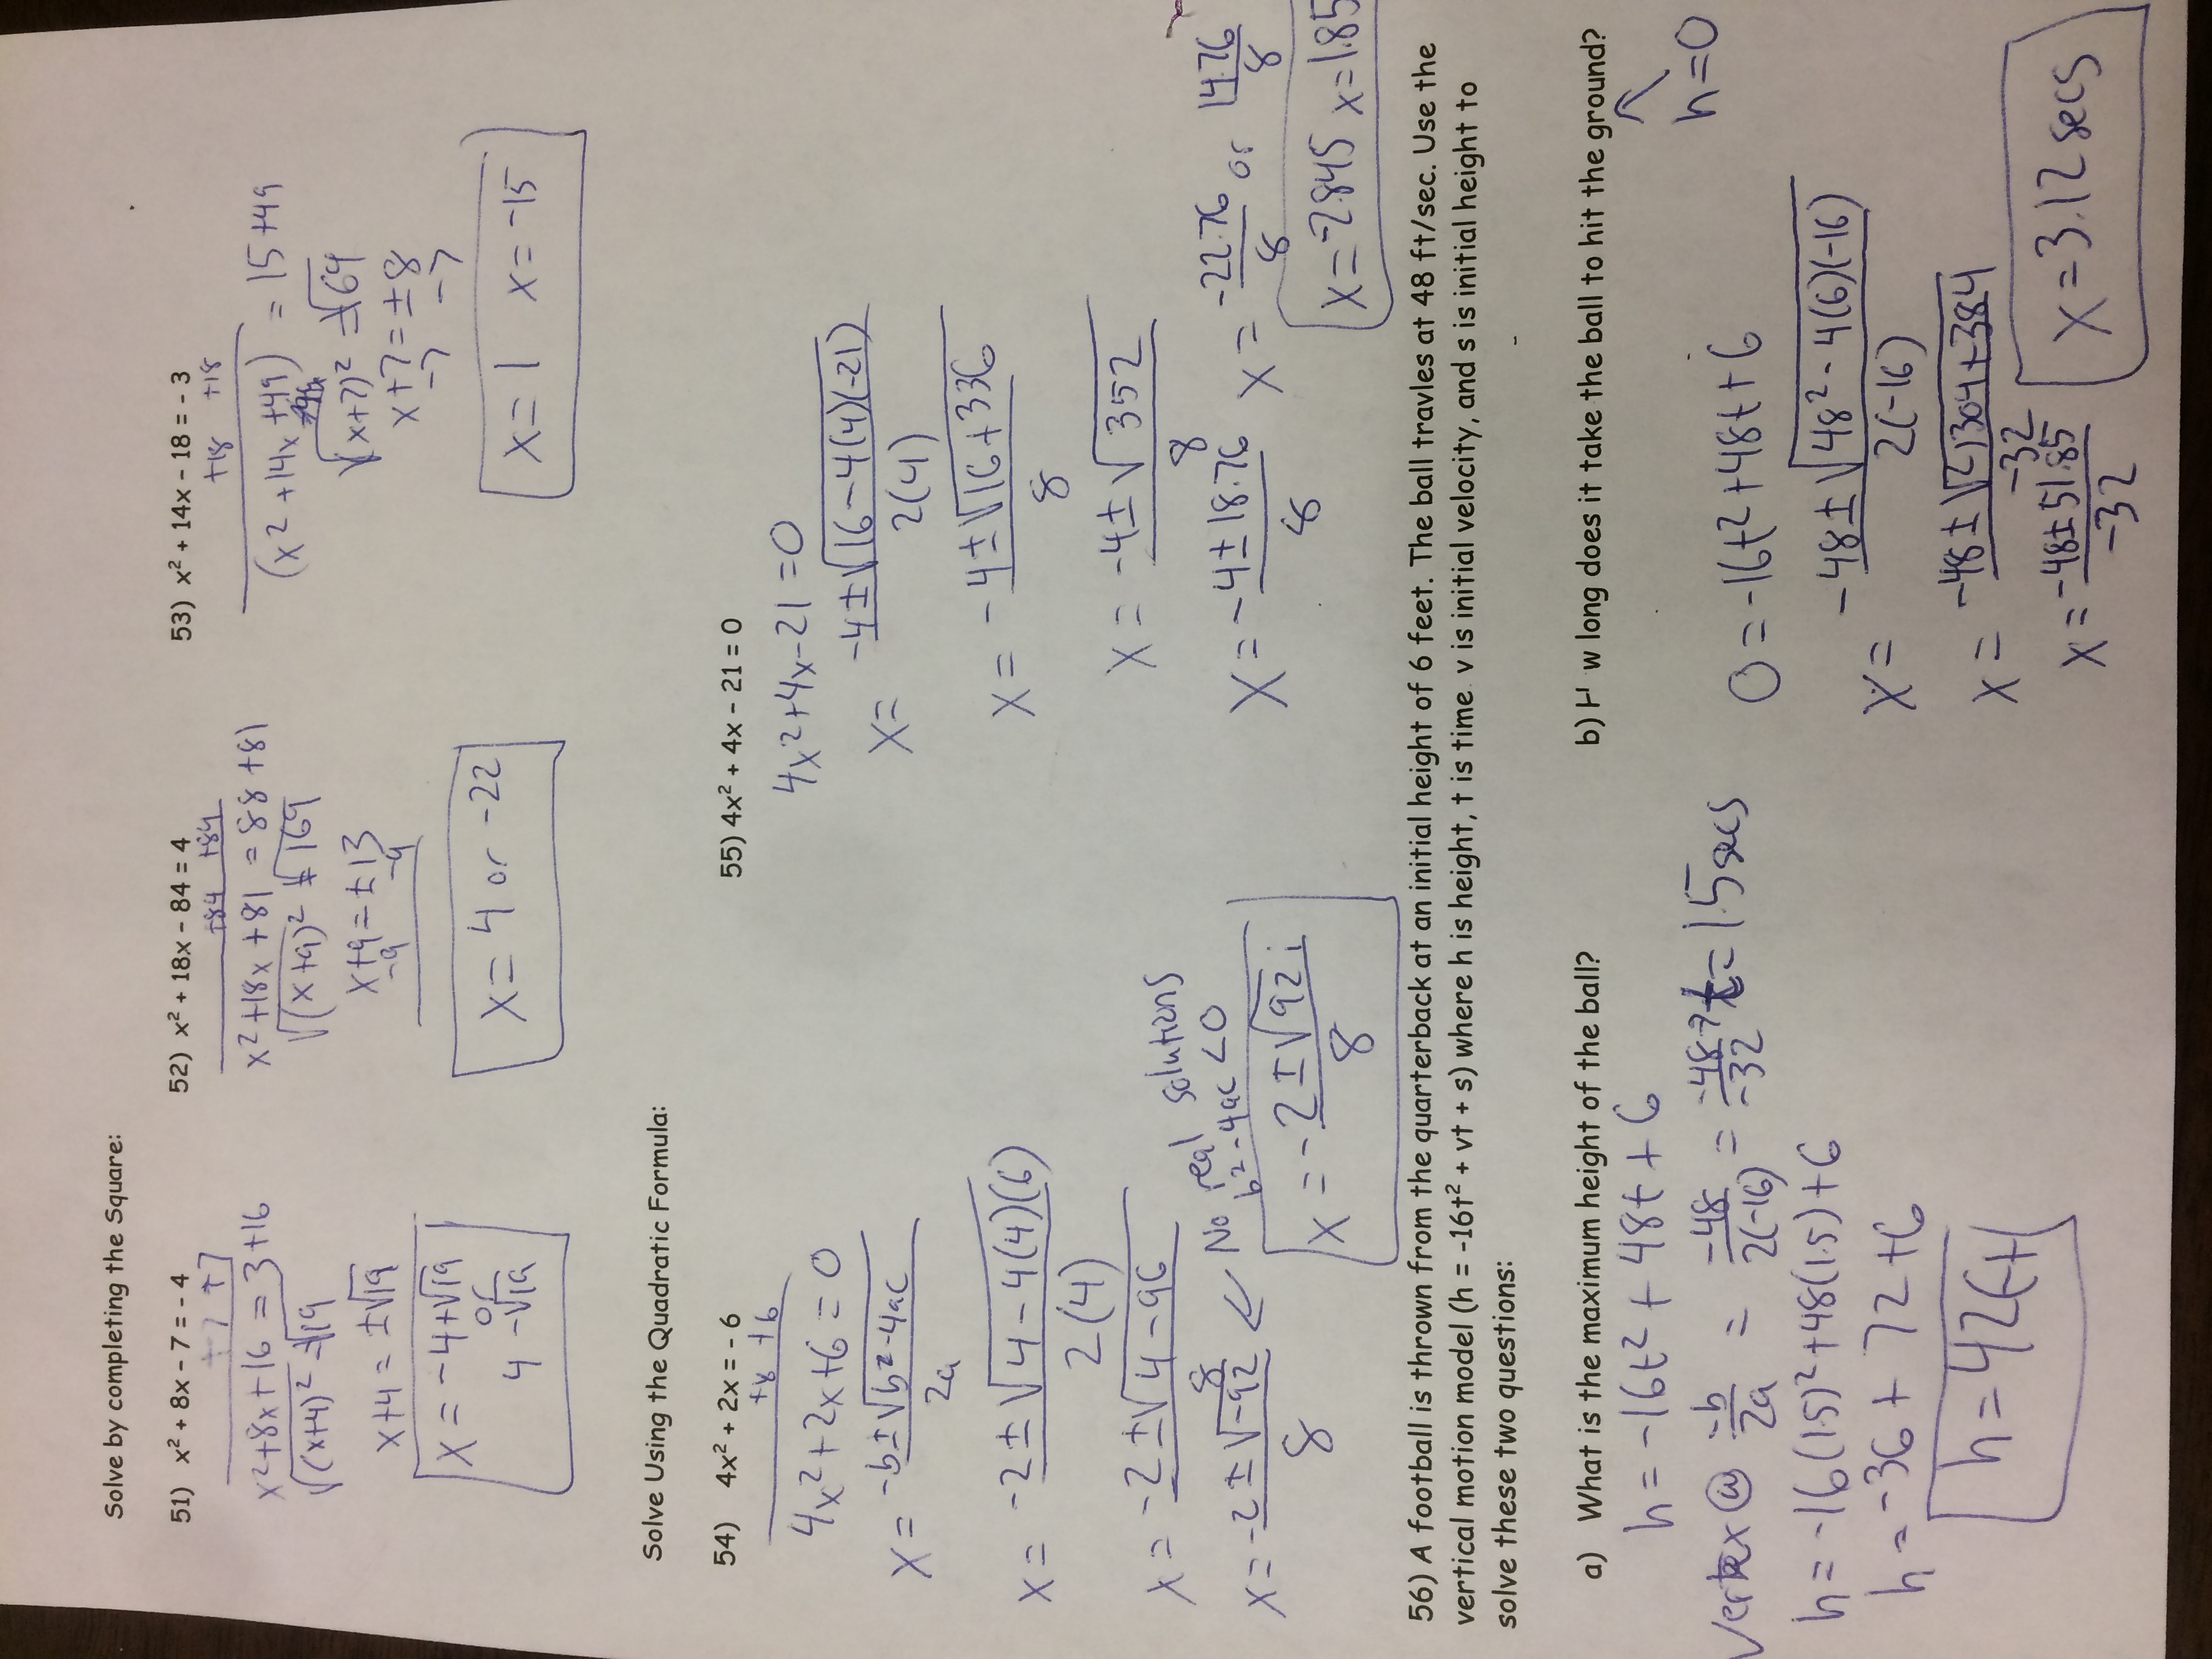 Solve by completing the Square:
51) x² + 8x - 7 = - 4
+7 +7
x²+8x+16 = 3+16
√(x+4)² = √19
x+4 = ±√19
x = -4+√19
or
4 -√19
52) x² + 18x - 84 = 4
+84 +84
x²+18x+81 = 88+81
√(x+9)² = ±√169
x+9 = ±13
-9 -9
x = 4 or -22
53) x² + 14x - 18 = - 3
+18 +18
(x²+14x+49) = 15+49
√(x+7)² = ±√64
x+7 = ±8
-7 -7
x = 1 x = -15
Solve Using the Quadratic Formula:
54) 4x² + 2x = - 6
+6 +6
4x²+2x+6=0
x = -b±√b²-4ac
2a
x = -2±√4-4(4)(6)
2(4)
x = -2±√4-96
8
x = -2±√-92
8
No real solutions
b²-4ac<0
x = -2±√92 i
8
55) 4x² + 4x - 21 = 0
4x²+4x-21=0
x= -4±√16-4(4)(-21)
2(4)
x = -4±√16+336
8
x = -4±√352
8
x = -4±18.76
8
x = -22.76 or 14.76
8 8
x=-2.845 x=1.85
56) A football is thrown from the quarterback at an initial height of 6 feet. The ball travles at 48 ft/sec. Use the
vertical motion model (h = -16t² + vt + s) where h is height, t is time v is initial velocity, and s is initial height to
solve these two questions:
a) What is the maximum height of the ball?
h = -16t² + 48t + 6
Vertex @ -b/2a = -48/2(-16) = -48/-32 t = 1.5 secs
h = -16(1.5)²+48(1.5)+6
h = -36 + 72 +6
h = 42ft
b) H w long does it take the ball to hit the ground?
h=0
0 = -16t²+48t+6
x = -48±√48²-4(6)(-16)
2(-16)
x = -48±√2304+384
-32
x = -48±51.85
-32
x = 3.12 secs